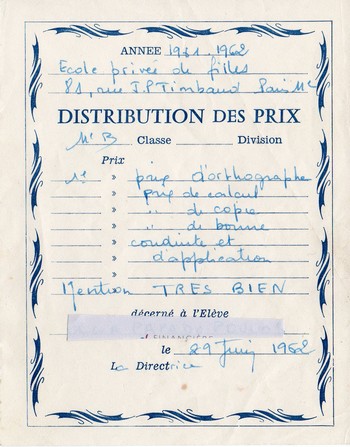 ANNEE 1961.1962
Ecole privée de filles
81, rue J.P Timbaud Paris XIe
DISTRIBUTION DES PRIX
Classe Division
Prix
1er » prix d'orthographe
» prix de calcul
» " de copie
» " de bonne
» conduite et
» d'application
»
Mention TRES BIEN
décerné à l'Elève
le 29 Juin 1962
La Directrice